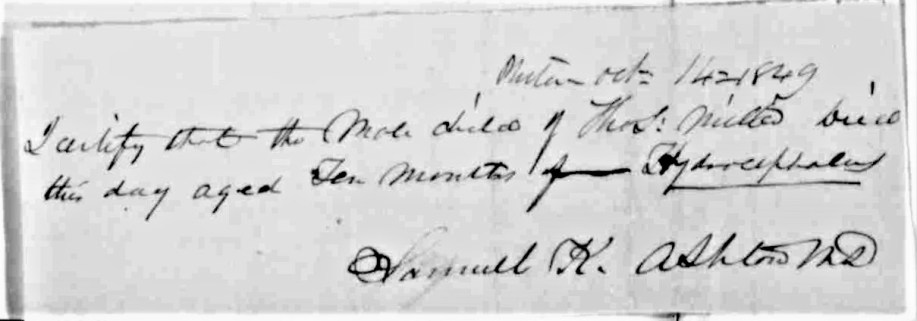 Oct 14 1849
I certify that the Male child of Thos: Miller Died
this day aged Ten Months from Hydrocephalus
Samuel K. Ashton MD